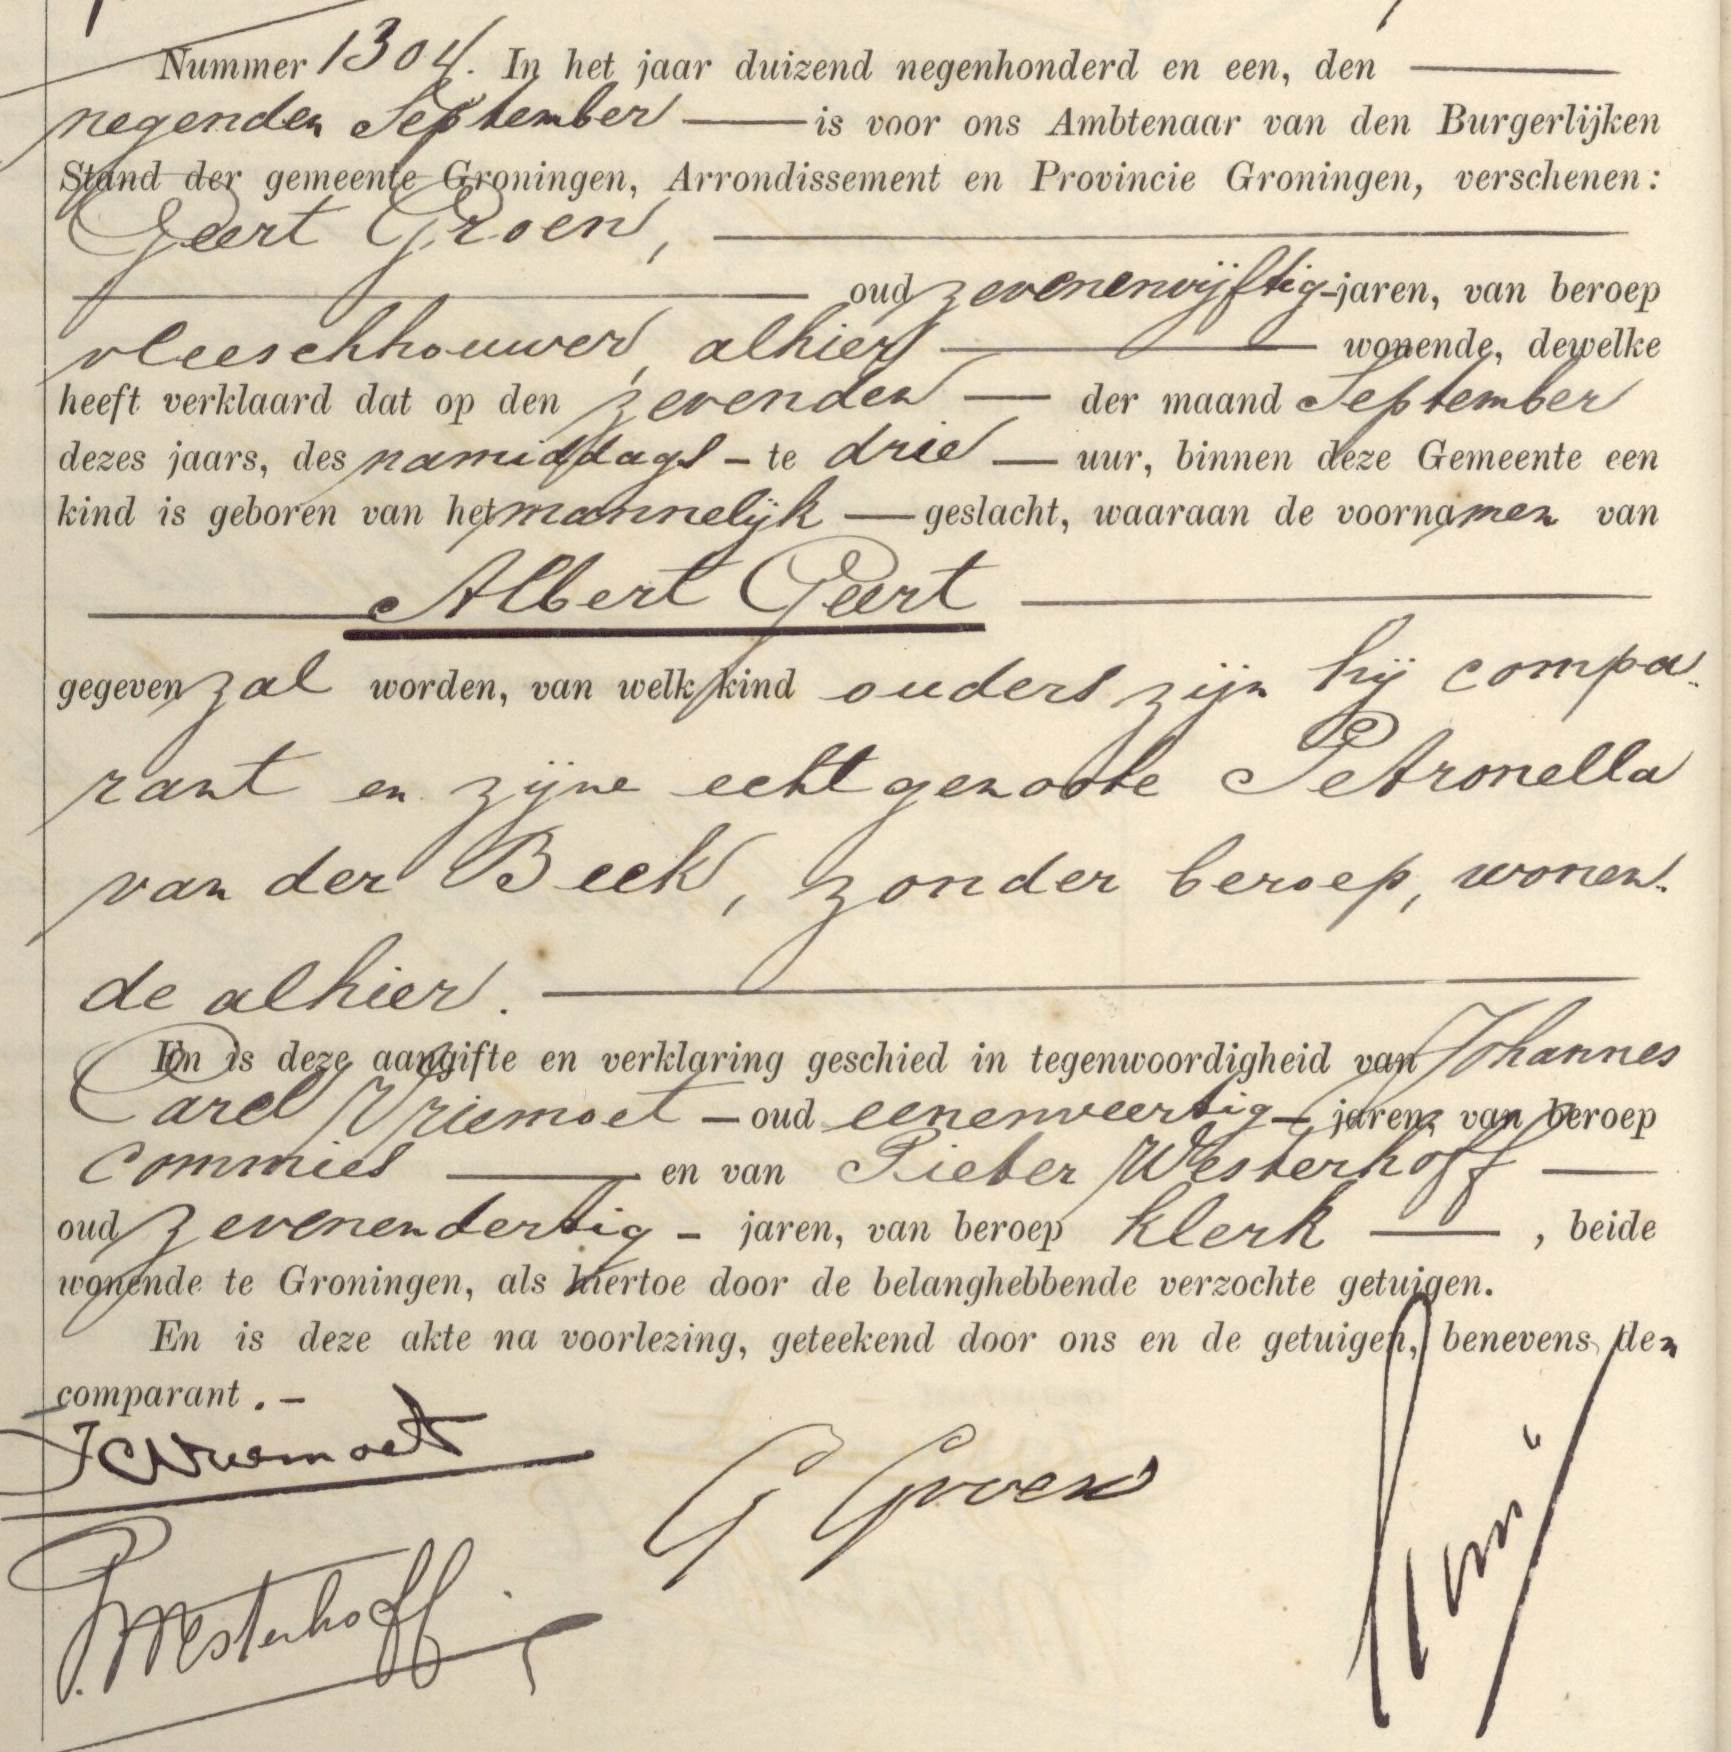 Nummer 1304. In het jaar duizend negenhonderd en een, den
negenden September is voor ons Ambtenaar van den Burgerlijken
Stand der gemeente Groningen, Arrondissement en Provincie Groningen, verschenen:
Geert Groen,
oud zevenenvijftig jaren, van beroep
vleeschhouwer, alhier wonende, dewelke
heeft verklaard dat op den zevenden der maand September
dezes jaars, des namiddags te drie uur, binnen deze Gemeente een
kind is geboren van het mannelijk geslacht, waaraan de voornamen van
Albert Geert
gegeven zal worden, van welk kind ouders zijn hij compa-
rant en zijne echtgenoote Petronella
van der Beek, zonder beroep, wonen-
de alhier.
En is deze aangifte en verklaring geschied in tegenwoordigheid van Johannes
Carel Vriemoet oud eenenveertig jaren, van beroep
commies en van Pieter Westerhoff
oud zevenendertig jaren, van beroep klerk, beide
wonende te Groningen, als hiertoe door de belanghebbende verzochte getuigen.
En is deze akte na voorlezing, geteekend door ons en de getuigen, benevens den
comparant.-
JCVriemoet
G Groen
P. Westerhoff